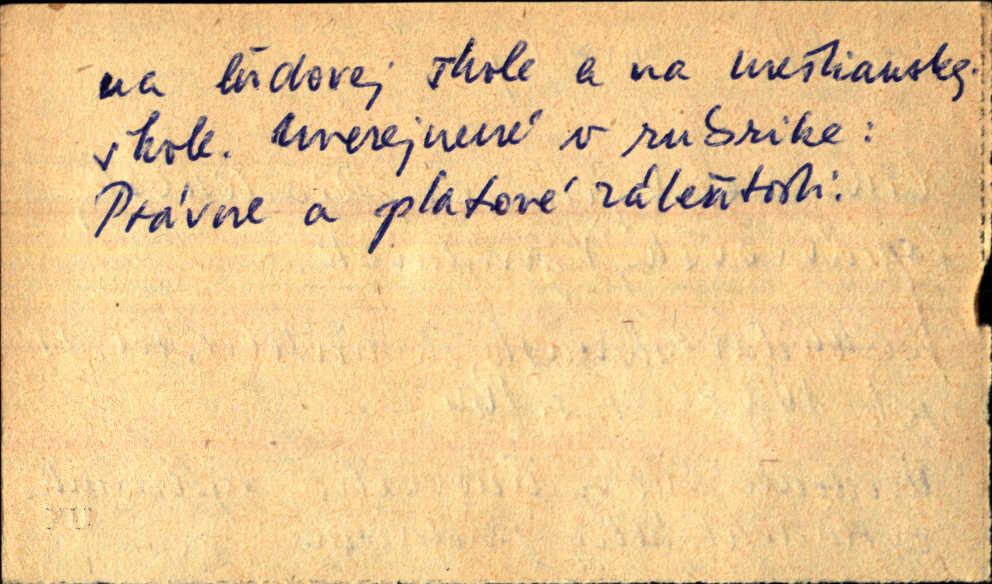 na ľudovej škole a na meštianskej
škole. Uverejnené v rubrike:
Právne a platové záležitosti.